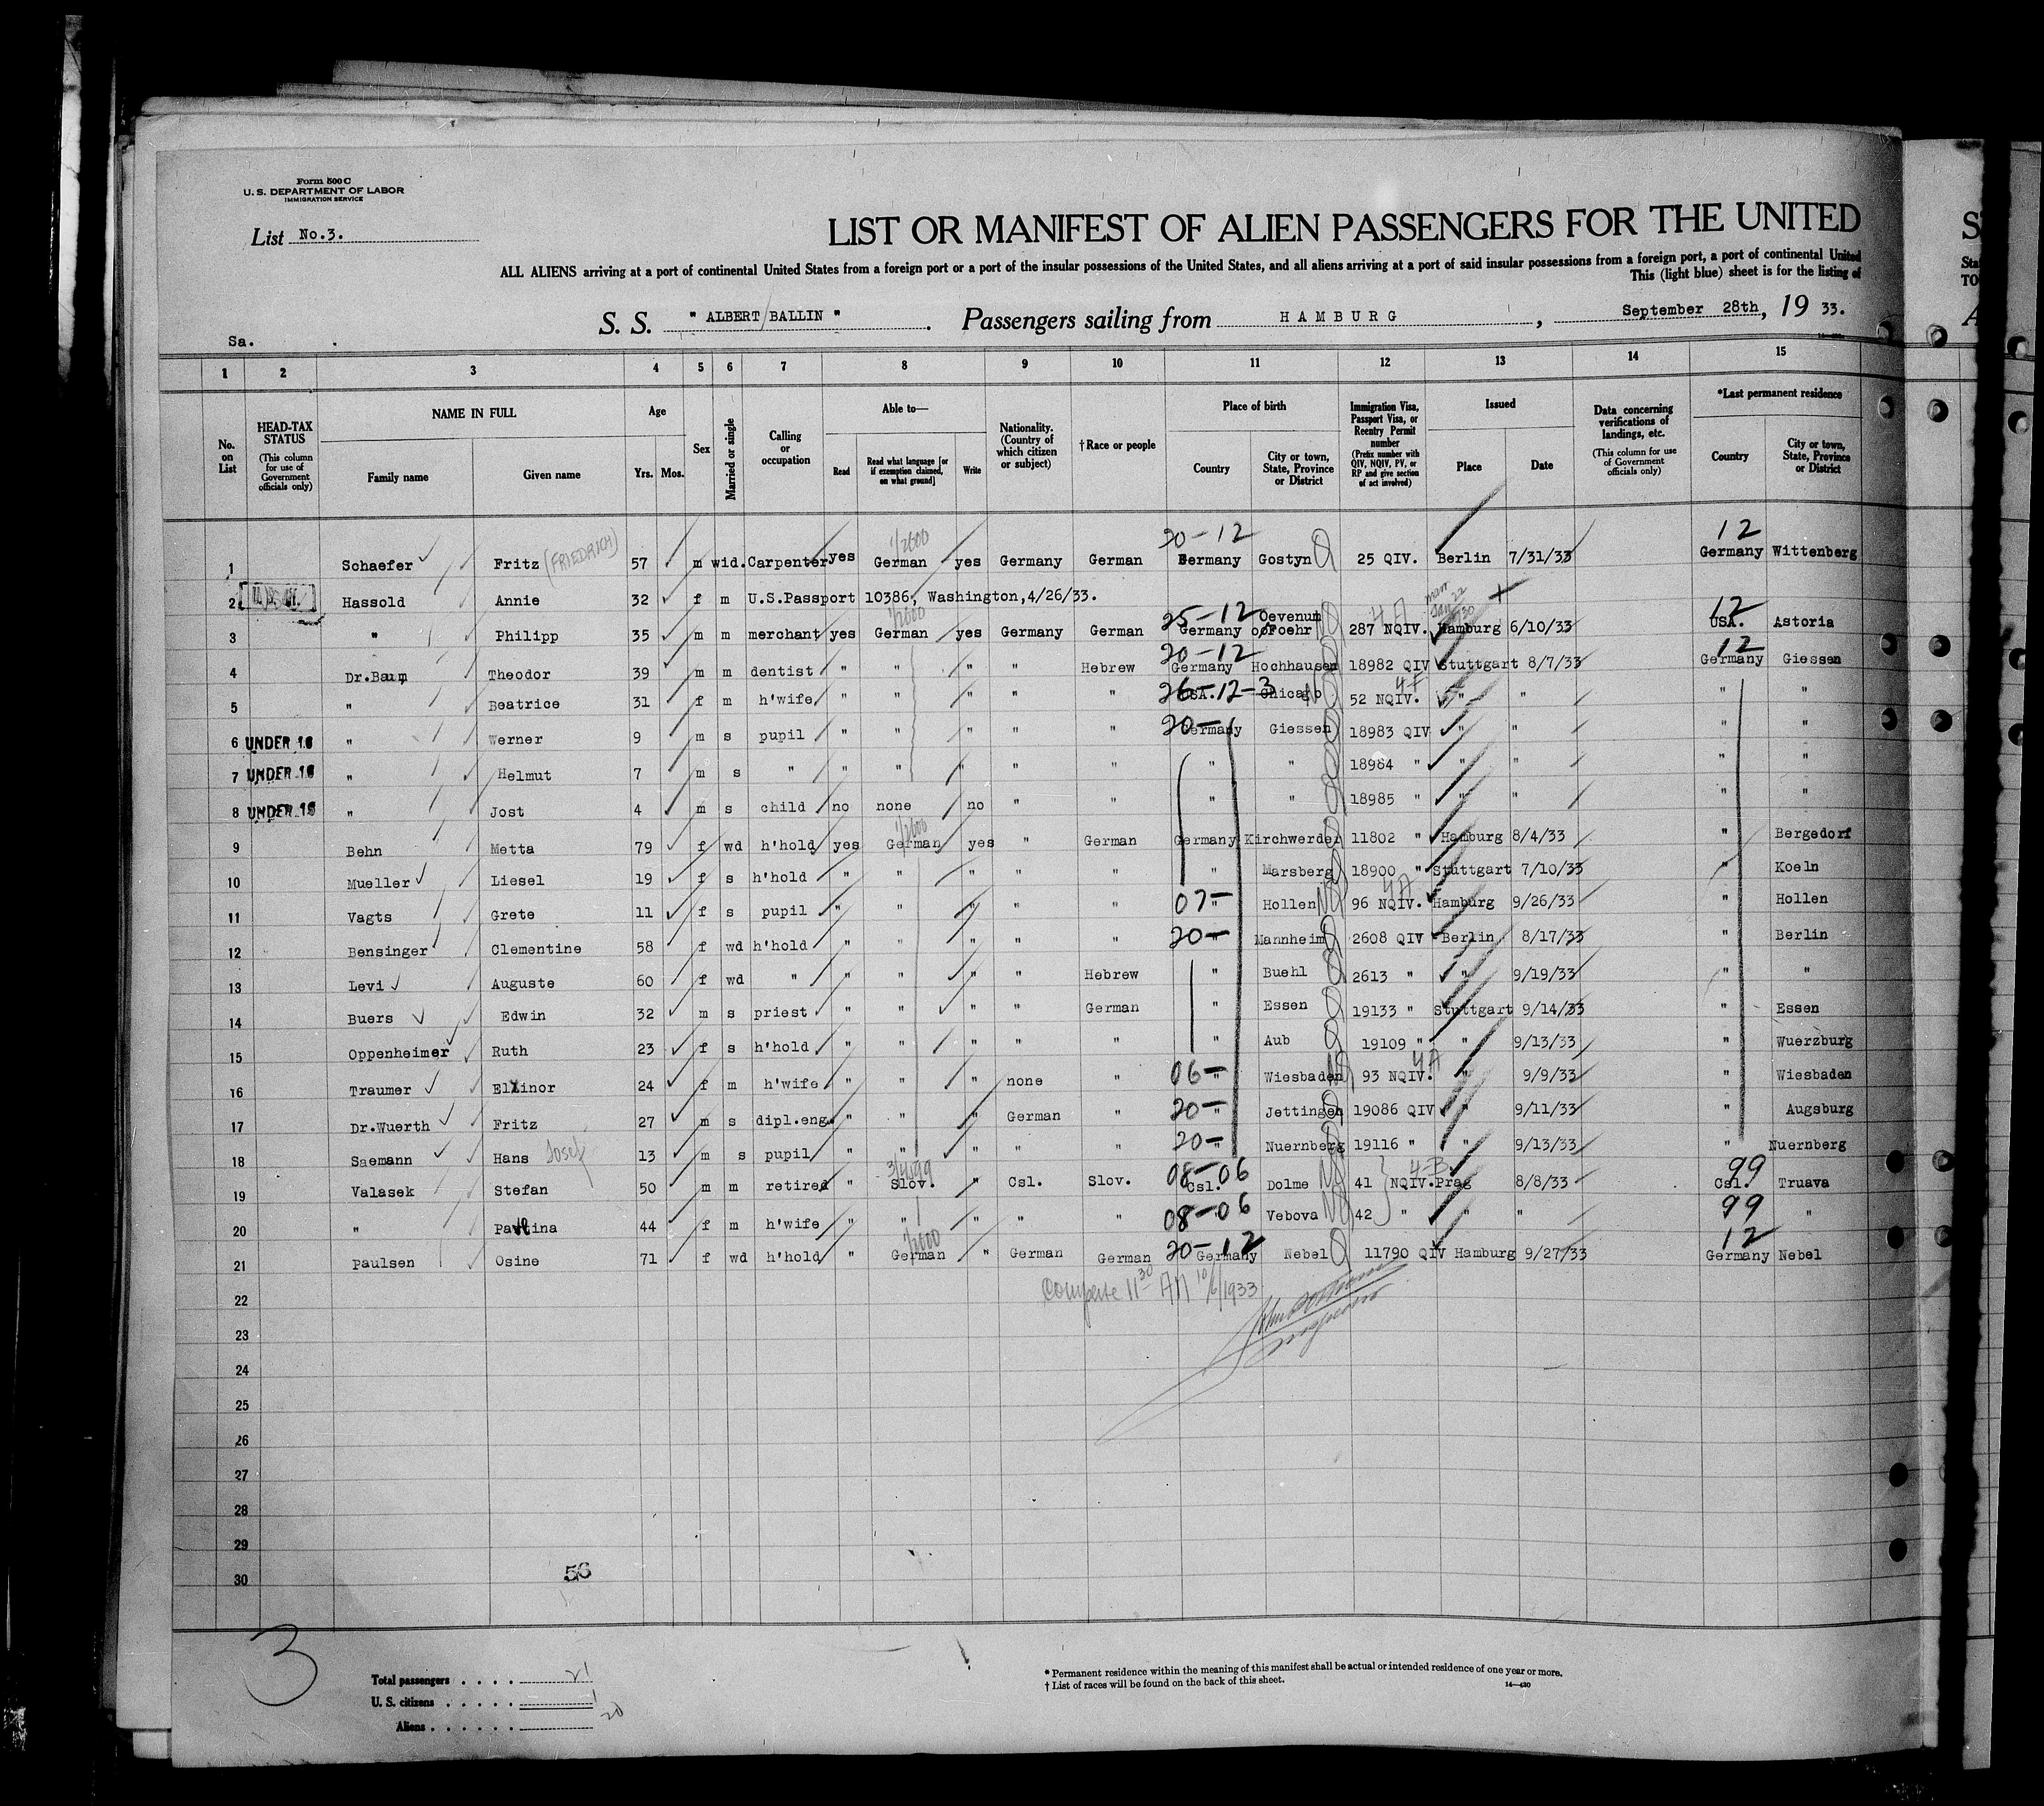 Form 500 C
U. S. DEPARTMENT OF LABOR
IMMIGRATION SERVICE
List No.3.
LIST OR MANIFEST OF ALIEN PASSENGERS FOR THE UNITED
ALL ALIENS arriving at a port of continental United States from a foreign port or a port of the insular possessions of the United States, and all aliens arriving at a port of said insular possessions from a foreign port, a port of continental United
This (light blue) sheet is for the listing of
S. S. " ALBERT BALLIN " . Passengers sailing from HAMBURG , September 28th, 19 33.
Sa.
1 2 3 4 5 6 7 8 9 10 11 12 13 14 15
No. on List
HEAD-TAX STATUS (This column for use of Government officials only)
NAME IN FULL Family name Given name
Age Yrs. Mos.
Sex
Married or single
Calling or occupation
Able to— Read Read what language [or if exemption claimed, on what ground] Write
Nationality. (Country of which citizen or subject)
† Race or people
Place of birth Country City or town, State, Province or District
Immigration Visa, Passport Visa, or Reentry Permit number (Prefix number with QIV, NQIV, PV, or RP and give section of act involved)
Issued Place Date
Data concerning verifications of landings, etc. (This column for use of Government officials only)
*Last permanent residence Country City or town, State, Province or District
20-12 12
1 Schaefer Fritz (FRIEDRICH) 57 m wid. Carpenter yes German yes Germany German Germany Gostyn 25 QIV. Berlin 7/31/33 Germany Wittenberg
2 Hassold Annie 32 f m U.S.Passport 10386, Washington,4/26/33.
25-12 4A 12
3 " Philipp 35 m m merchant yes German yes Germany German Germany Oevenum o/Foehr 287 NQIV. Hamburg 6/10/33 USA. Astoria
20-12 12
4 Dr.Baum Theodor 39 m m dentist " " " " Hebrew Germany Hochhausen 18982 QIV Stuttgart 8/7/33 Germany Giessen
26-12-3 4F
5 " Beatrice 31 f m h'wife " " " " " USA. Chicago 52 NQIV. " " " "
6 UNDER 16 " Werner 9 m s pupil " " " " " 20- Germany Giessen 18983 QIV " " " "
7 UNDER 16 " Helmut 7 m s " " " " " " " " 18984 " " " " "
8 UNDER 16 " Jost 4 m s child no none no " " " " 18985 " " " " "
9 Behn Metta 79 f wd h'hold yes German yes " German Germany Kirchwerder 11802 " Hamburg 8/4/33 " Bergedorf
10 Mueller Liesel 19 f s h'hold " " " " " " Marsberg 18900 " Stuttgart 7/10/33 " Koeln
11 Vagts Grete 11 f s pupil " " " " " 07- " Hollen 96 NQIV. 4A Hamburg 9/26/33 " Hollen
12 Bensinger Clementine 58 f wd h'hold " " " " " 20- " Mannheim 2608 QIV Berlin 8/17/33 " Berlin
13 Levi Auguste 60 f wd " " " " " Hebrew " Buehl 2613 " " 9/19/33 " "
14 Buers Edwin 32 m s priest " " " " German " Essen 19133 " Stuttgart 9/14/33 " Essen
15 Oppenheimer Ruth 23 f s h'hold " " " " " " Aub 19109 " " 9/13/33 " Wuerzburg
16 Traumer Ellinor 24 f m h'wife " " " none " 06- " Wiesbaden 93 NQIV. 4A " 9/9/33 " Wiesbaden
17 Dr.Wuerth Fritz 27 m s dipl.eng. " " " German " 20- " Jettingen 19086 QIV " 9/11/33 " Augsburg
18 Saemann Hans Josef 13 m s pupil " " " " " 20- " Nuernberg 19116 " " 9/13/33 " Nuernberg
08-06 4-B 99
19 Valasek Stefan 50 m m retired " Slov. " Csl. Slov. Csl. Dolme 41 NQIV. Prag 8/8/33 Csl. Truava
20 " 44 f m h'wife " " " " " 08-06 Vebova 42 " " " 99 "
20-12 12
21 Paulsen Osine 71 f wd h'hold " German " German German Germany Nebel 11790 QIV Hamburg 9/27/33 Germany Nebel
22
23
24
25
26
27
28
29
30
11 30 AM 10/6/1933
56
3
Total passengers 21
U. S. citizens 1
Aliens 20
* Permanent residence within the meaning of this manifest shall be actual or intended residence of one year or more.
† List of races will be found on the back of this sheet.
14—430